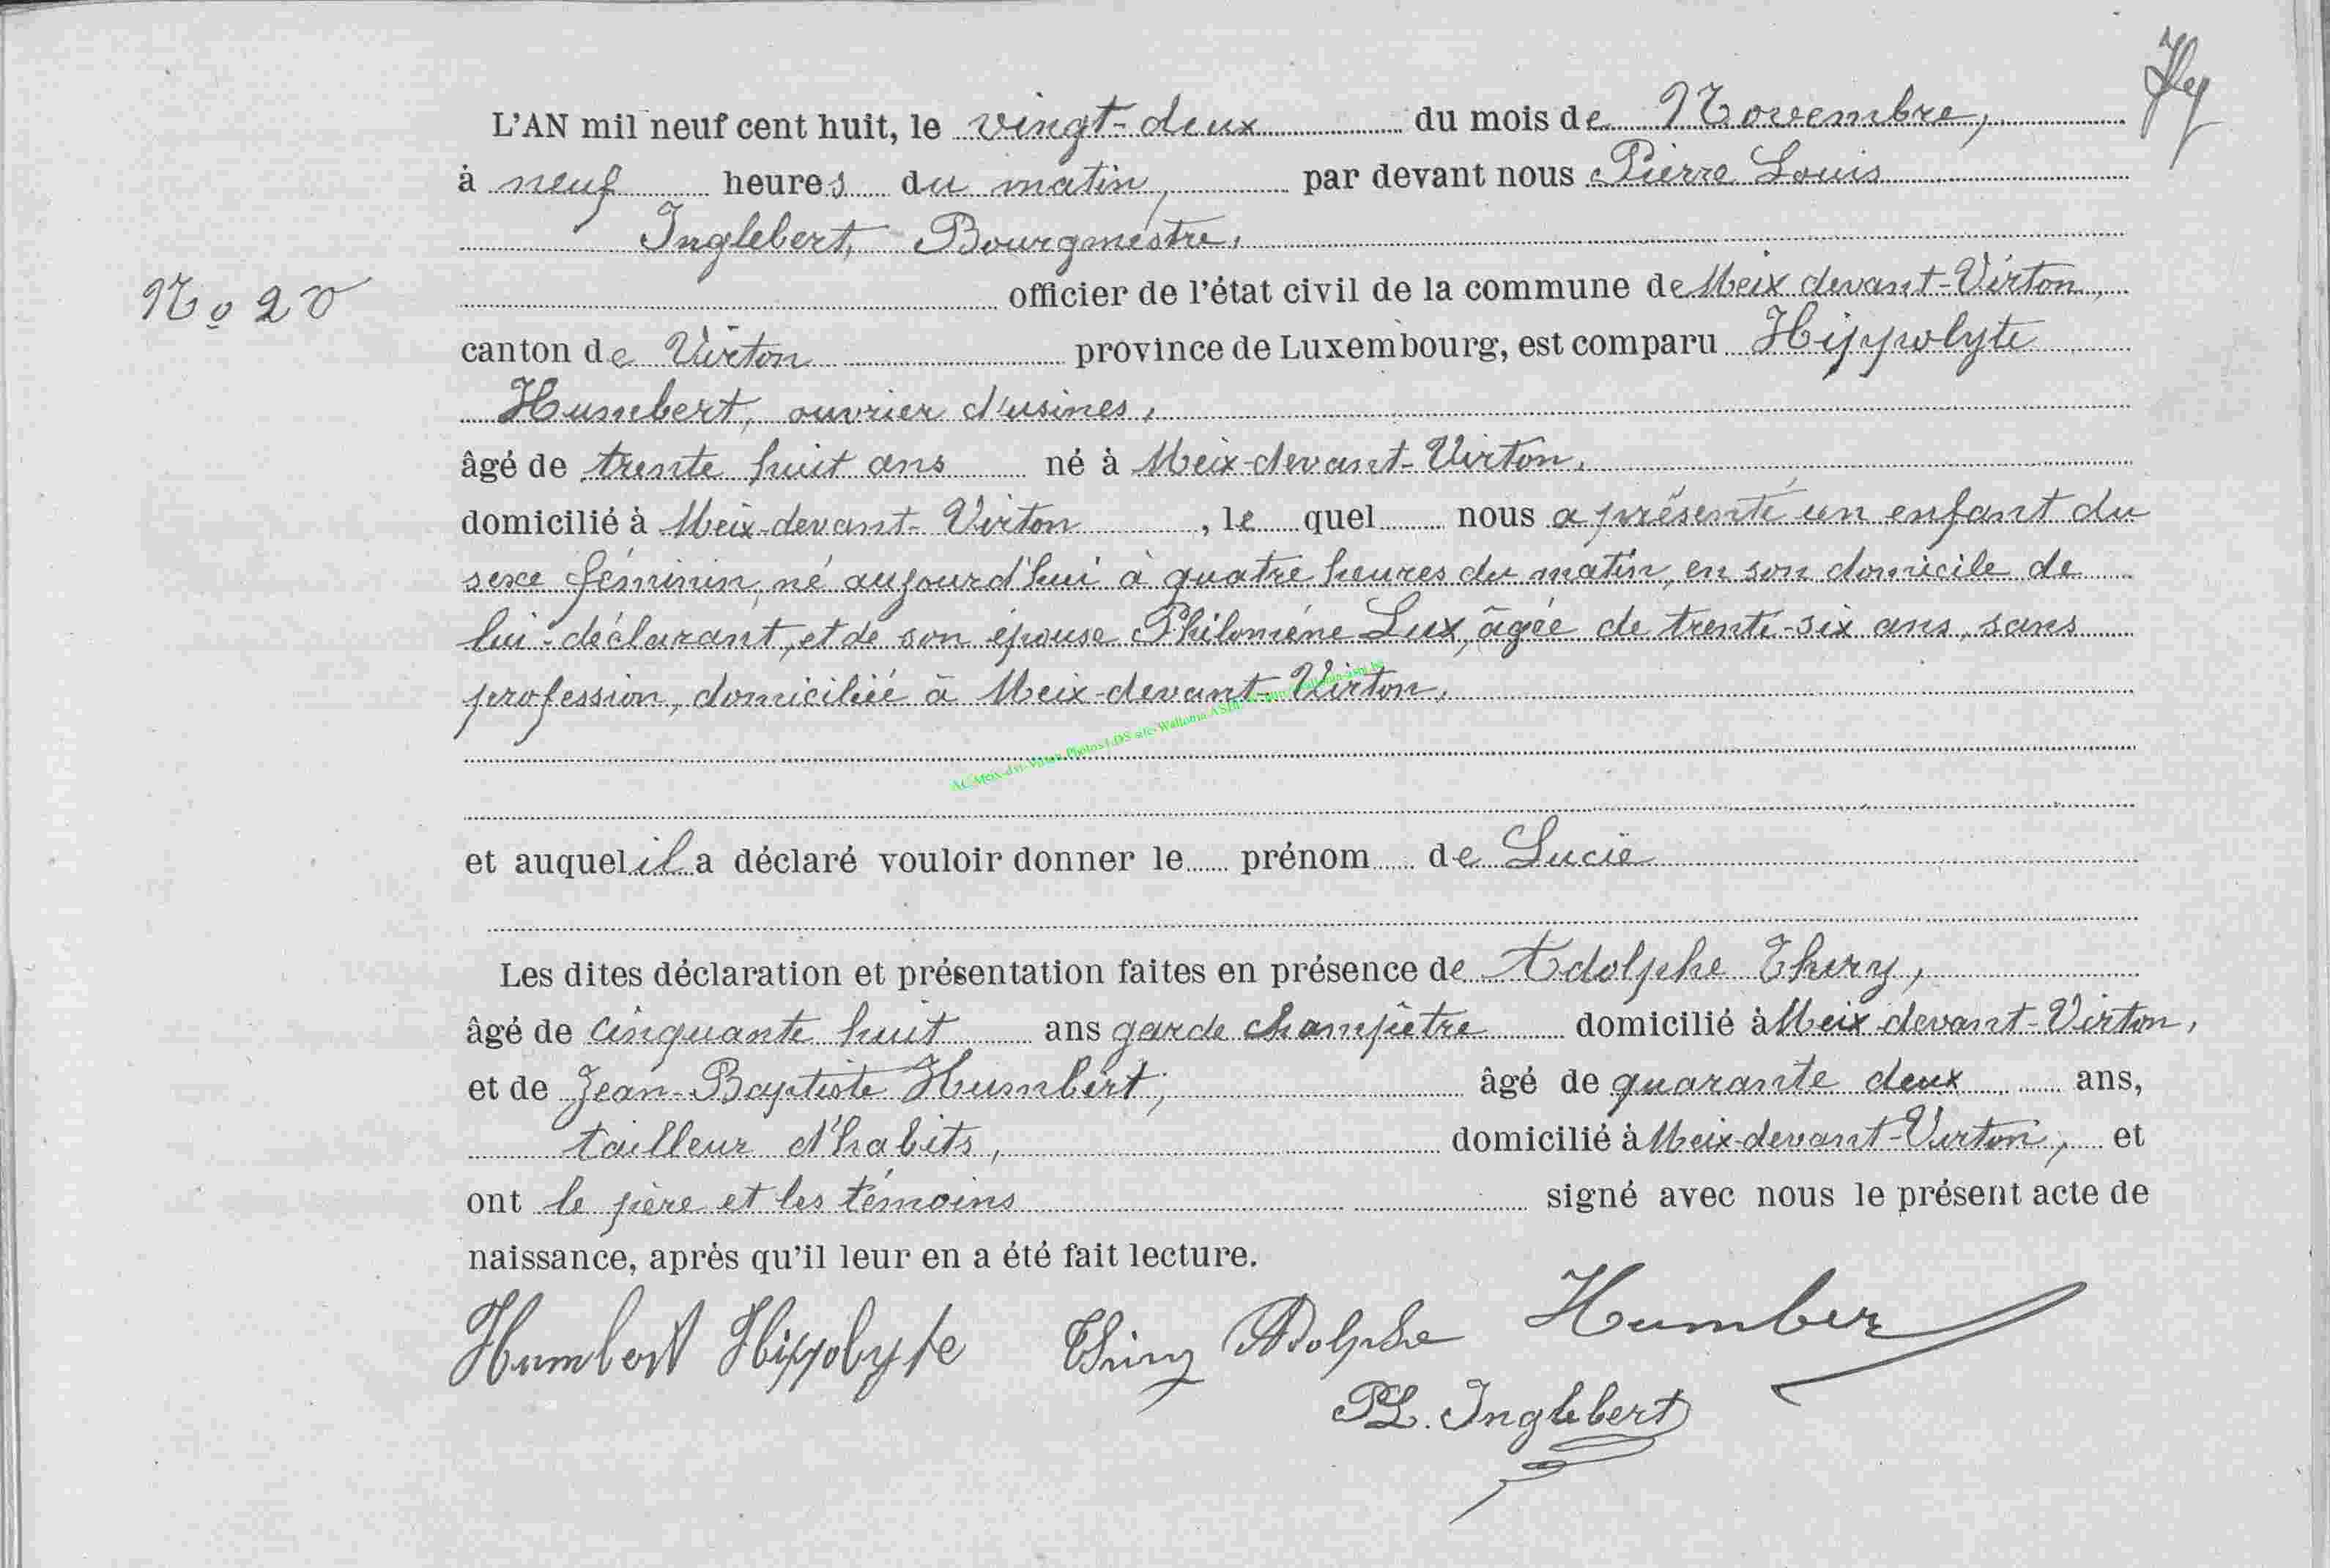 L'AN mil neuf cent huit, le vingt-deux du mois de Novembre,
à neuf heures du matin, par devant nous Pierre Louis
Inglebert, Bourgmestre,
No 20
officier de l'état civil de la commune de Meix devant-Virton,
canton de Virton province de Luxembourg, est comparu Hippolyte
Humbert, ouvrier d'usines,
âgé de trente huit ans né à Meix-devant-Virton,
domicilié à Meix-devant-Virton, le quel nous a présenté un enfant du
sexe féminin, né aujourd'hui à quatre heures du matin, en son domicile de
lui-déclarant, et de son épouse Philomène Lux, âgée de trente-six ans, sans
profession, domiciliée à Meix-devant-Virton,
et auquel il a déclaré vouloir donner le prénom de Lucie
Les dites déclaration et présentation faites en présence de Adolphe Thiry,
âgé de cinquante huit ans garde champêtre domicilié à Meix devant-Virton,
et de Jean-Baptiste Humbert, âgé de quarante deux ans,
tailleur d'habits, domicilié à Meix-devant-Virton, et
ont le père et les témoins signé avec nous le présent acte de
naissance, après qu'il leur en a été fait lecture.
Humbert Hippolyte Thiry Adolphe Humber
PL. Inglebert